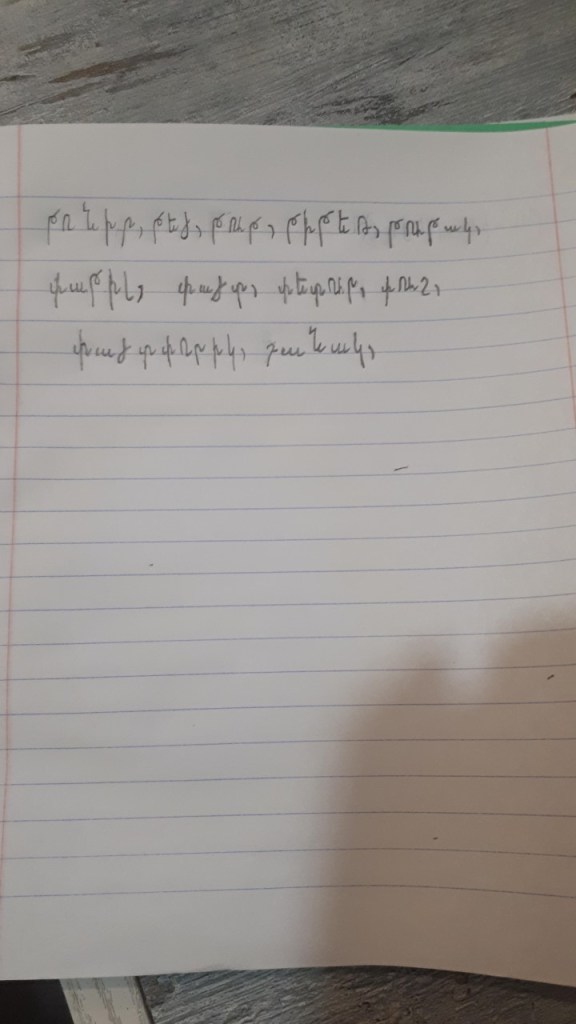 թոնիր, թեյ, թութ, թիթեռ, թութակ,
փաթիլ, փայտ, փետուր, փուշ,
փայտփորիկ, չանակ,